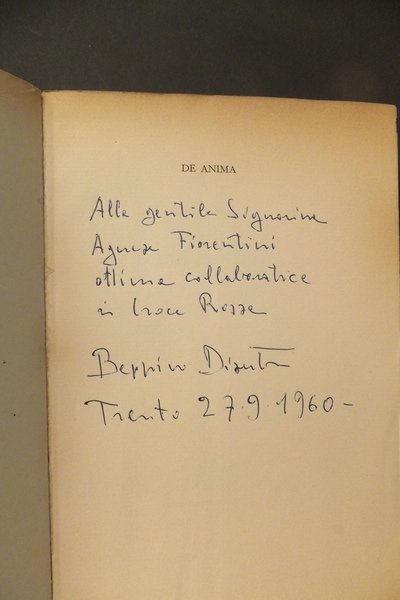 DE ANIMA
Alla gentile Signorina
Agnese Fiorentini
ottima collaboratrice
in Croce Rossa
Beppino Disertori
Trento 27.9.1960-